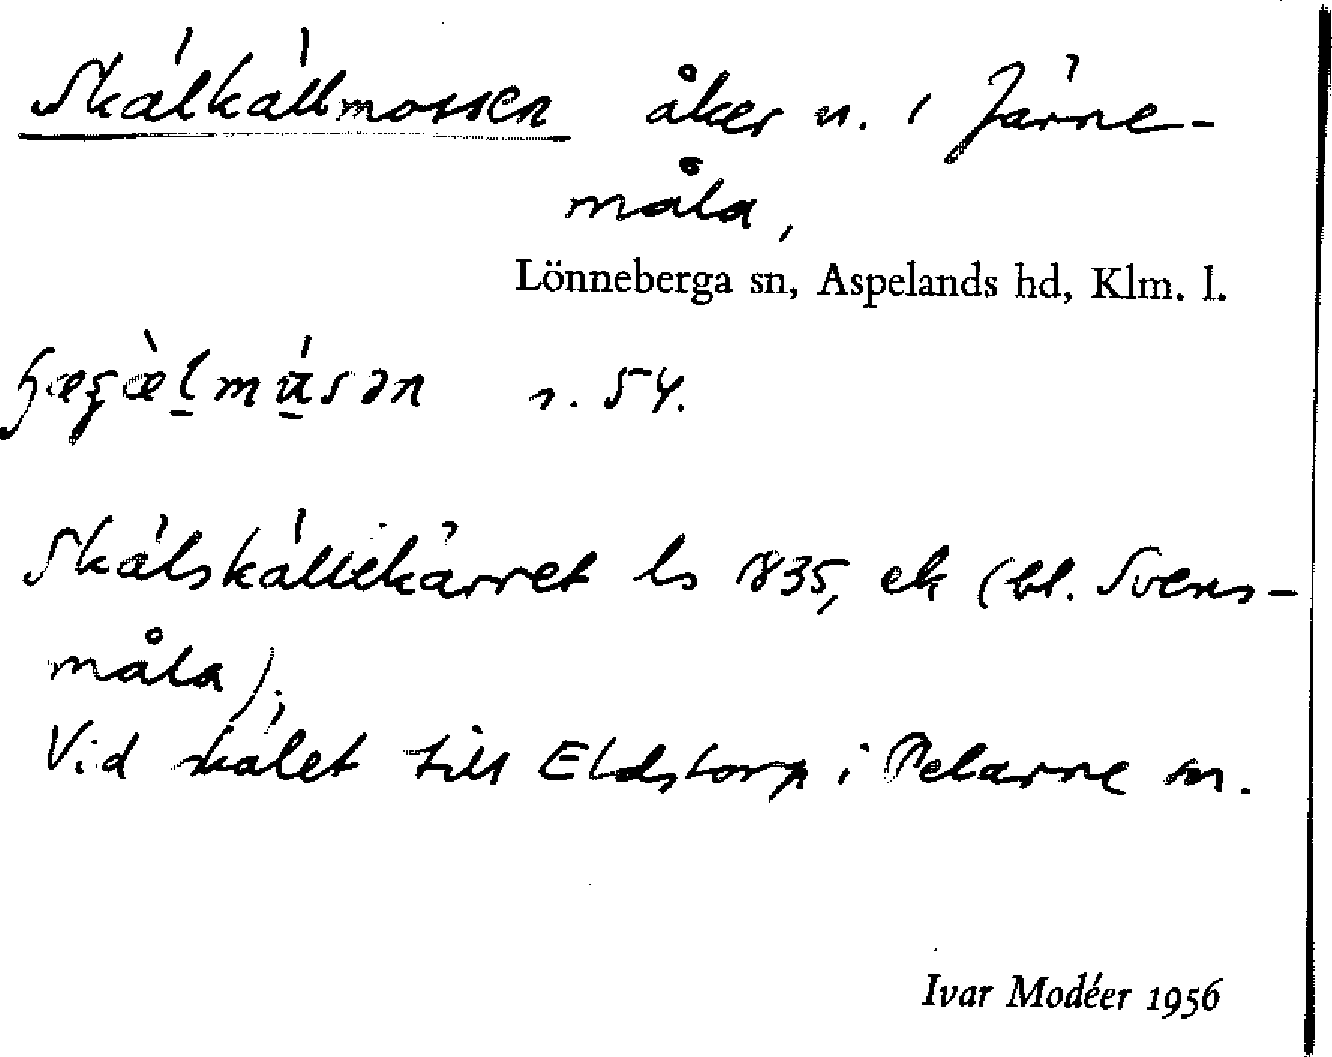 Skälkällmossen åker n. i Järne-
måla,
Lönneberga sn, Aspelands hd, Klm. l.
s. 54.
Skälskällekärret ls 1835, ek (bl. Svens-
måla),
Vid skälet till Eldstorp i Pelarne sn.
Ivar Modéer 1956